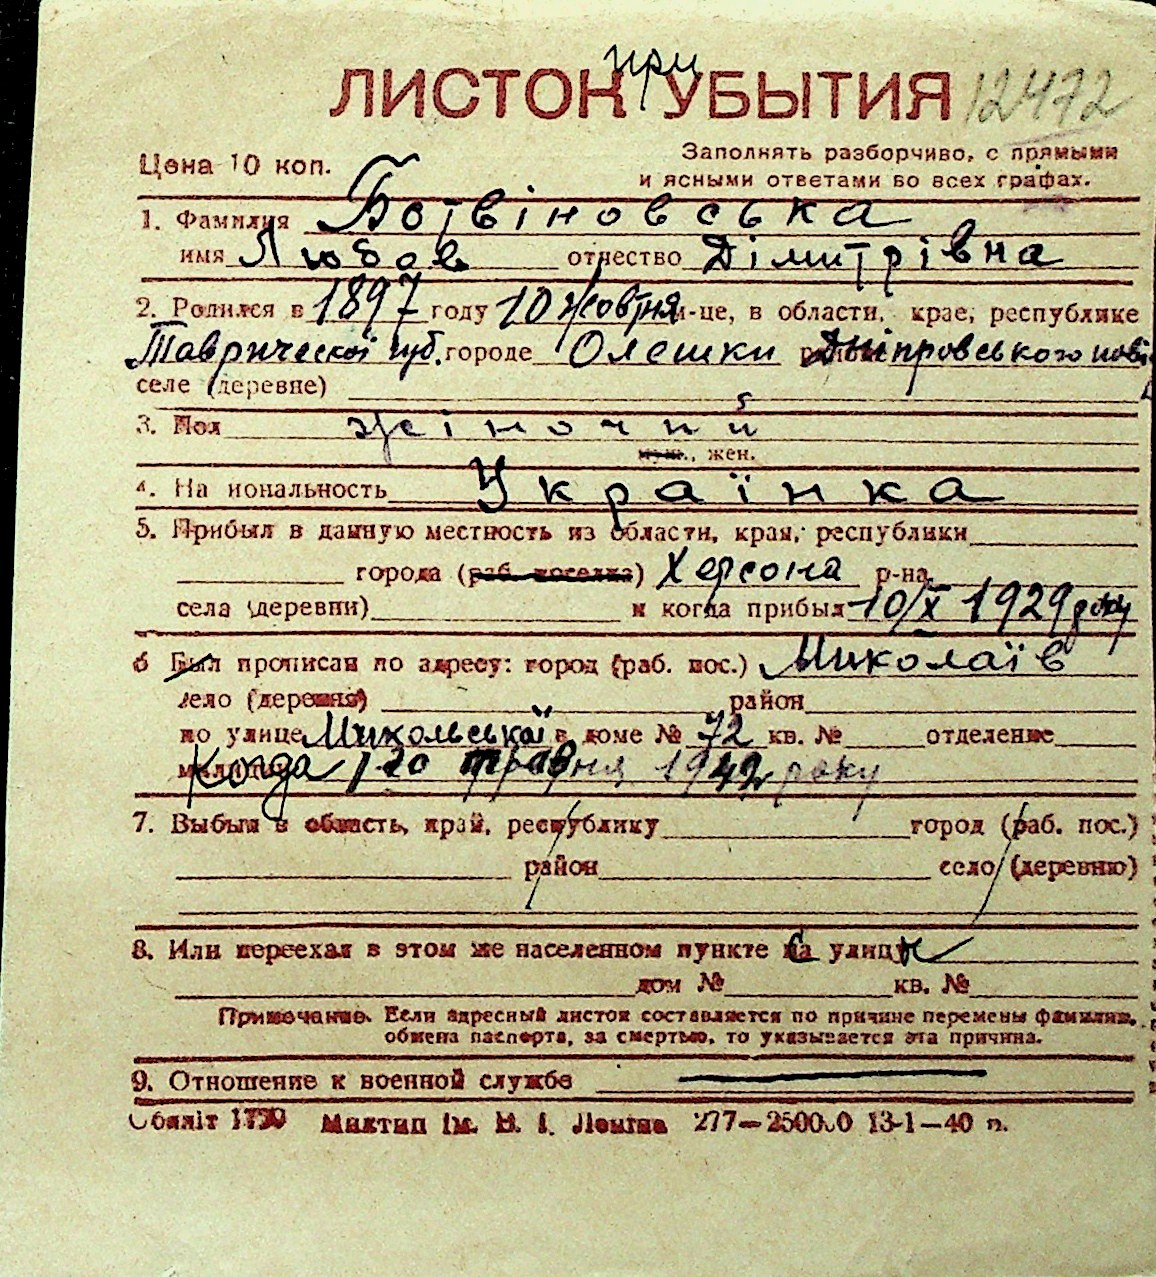 ЛИСТОК при УБЫТИЯ 12472
Цена 10 коп.
Заполнять разборчиво, с прямыми
и ясными ответами во всех графах.
1. Фамилия Ботвіновська
имя Любов отчество Дімитрівна
2. Родился в 1897 году 10 жовтня м-це, в области, крае, республике
Таврическої губ. городе Олешки Дніпровського пові
селе (деревне)
3. Пол жіночий
муж., жен.
4. На иональность Українка
5. Прибыл в данную местность из области, края, республики
города (раб. поселка) Херсона р-на
села (деревни) и когда прибыл 10/X 1929 року
6 Был прописан по адресу: город (раб. пос.) Миколаїв
село (деревня) район
по улице Микольської в доме № 72 кв. № отделение
Когда 20 травня 1942 року
7. Выбыл в область, край, республику город (раб. пос.)
район село (деревню)
8. Или переехал в этом же населенном пункте с улицы
дом № кв. №
Примечание. Если адресный листок составляется по причине перемены фамилии,
обмена паспорта, за смертью, то указывается эта причина.
9. Отношение к военной службе
Обліт 1750 Миктип ім. В. І. Леніна 277—250000 13-1—40 п.